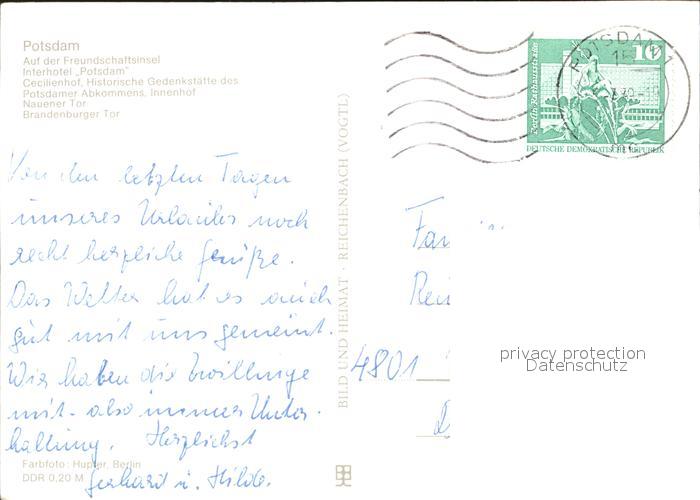 Potsdam
Auf der Freundschaftsinsel
Interhotel „Potsdam"
Cecilienhof, Historische Gedenkstätte des
Potsdamer Abkommens, Innenhof
Nauener Tor
Brandenburger Tor
Von den letzten Tagen
unseres Urlaubs noch
recht herzliche Grüße.
Das Wetter hat es auch
gut mit uns gemeint.
Wir haben die Zwillinge
mit - also immer Unter-
haltung. Herzlichst
Gerhard u. Hilde.
Farbfoto: Hupfer, Berlin
DDR 0,20 M
BILD UND HEIMAT · REICHENBACH (VOGTL)
POTSDAM 1
15
10
Berlin Rathausstraße
DEUTSCHE DEMOKRATISCHE REPUBLIK
Fa
Rei
4801
privacy protection
Datenschutz